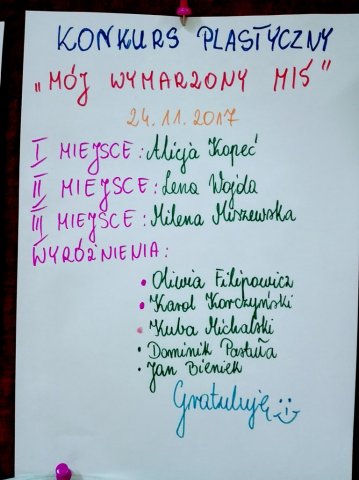 KONKURS PLASTYCZNY
„MÓJ WYMARZONY MIŚ"
24.11.2017
I MIEJSCE: Alicja Kopeć
II MIEJSCE: Lena Wojda
III MIEJSCE: Milena Miszewska
WYRÓŻNIENIA:
• Oliwia Filipowicz
• Karol Korczyński
• Kuba Michalski
• Dominik
• Jan Bieniek
Gratuluję